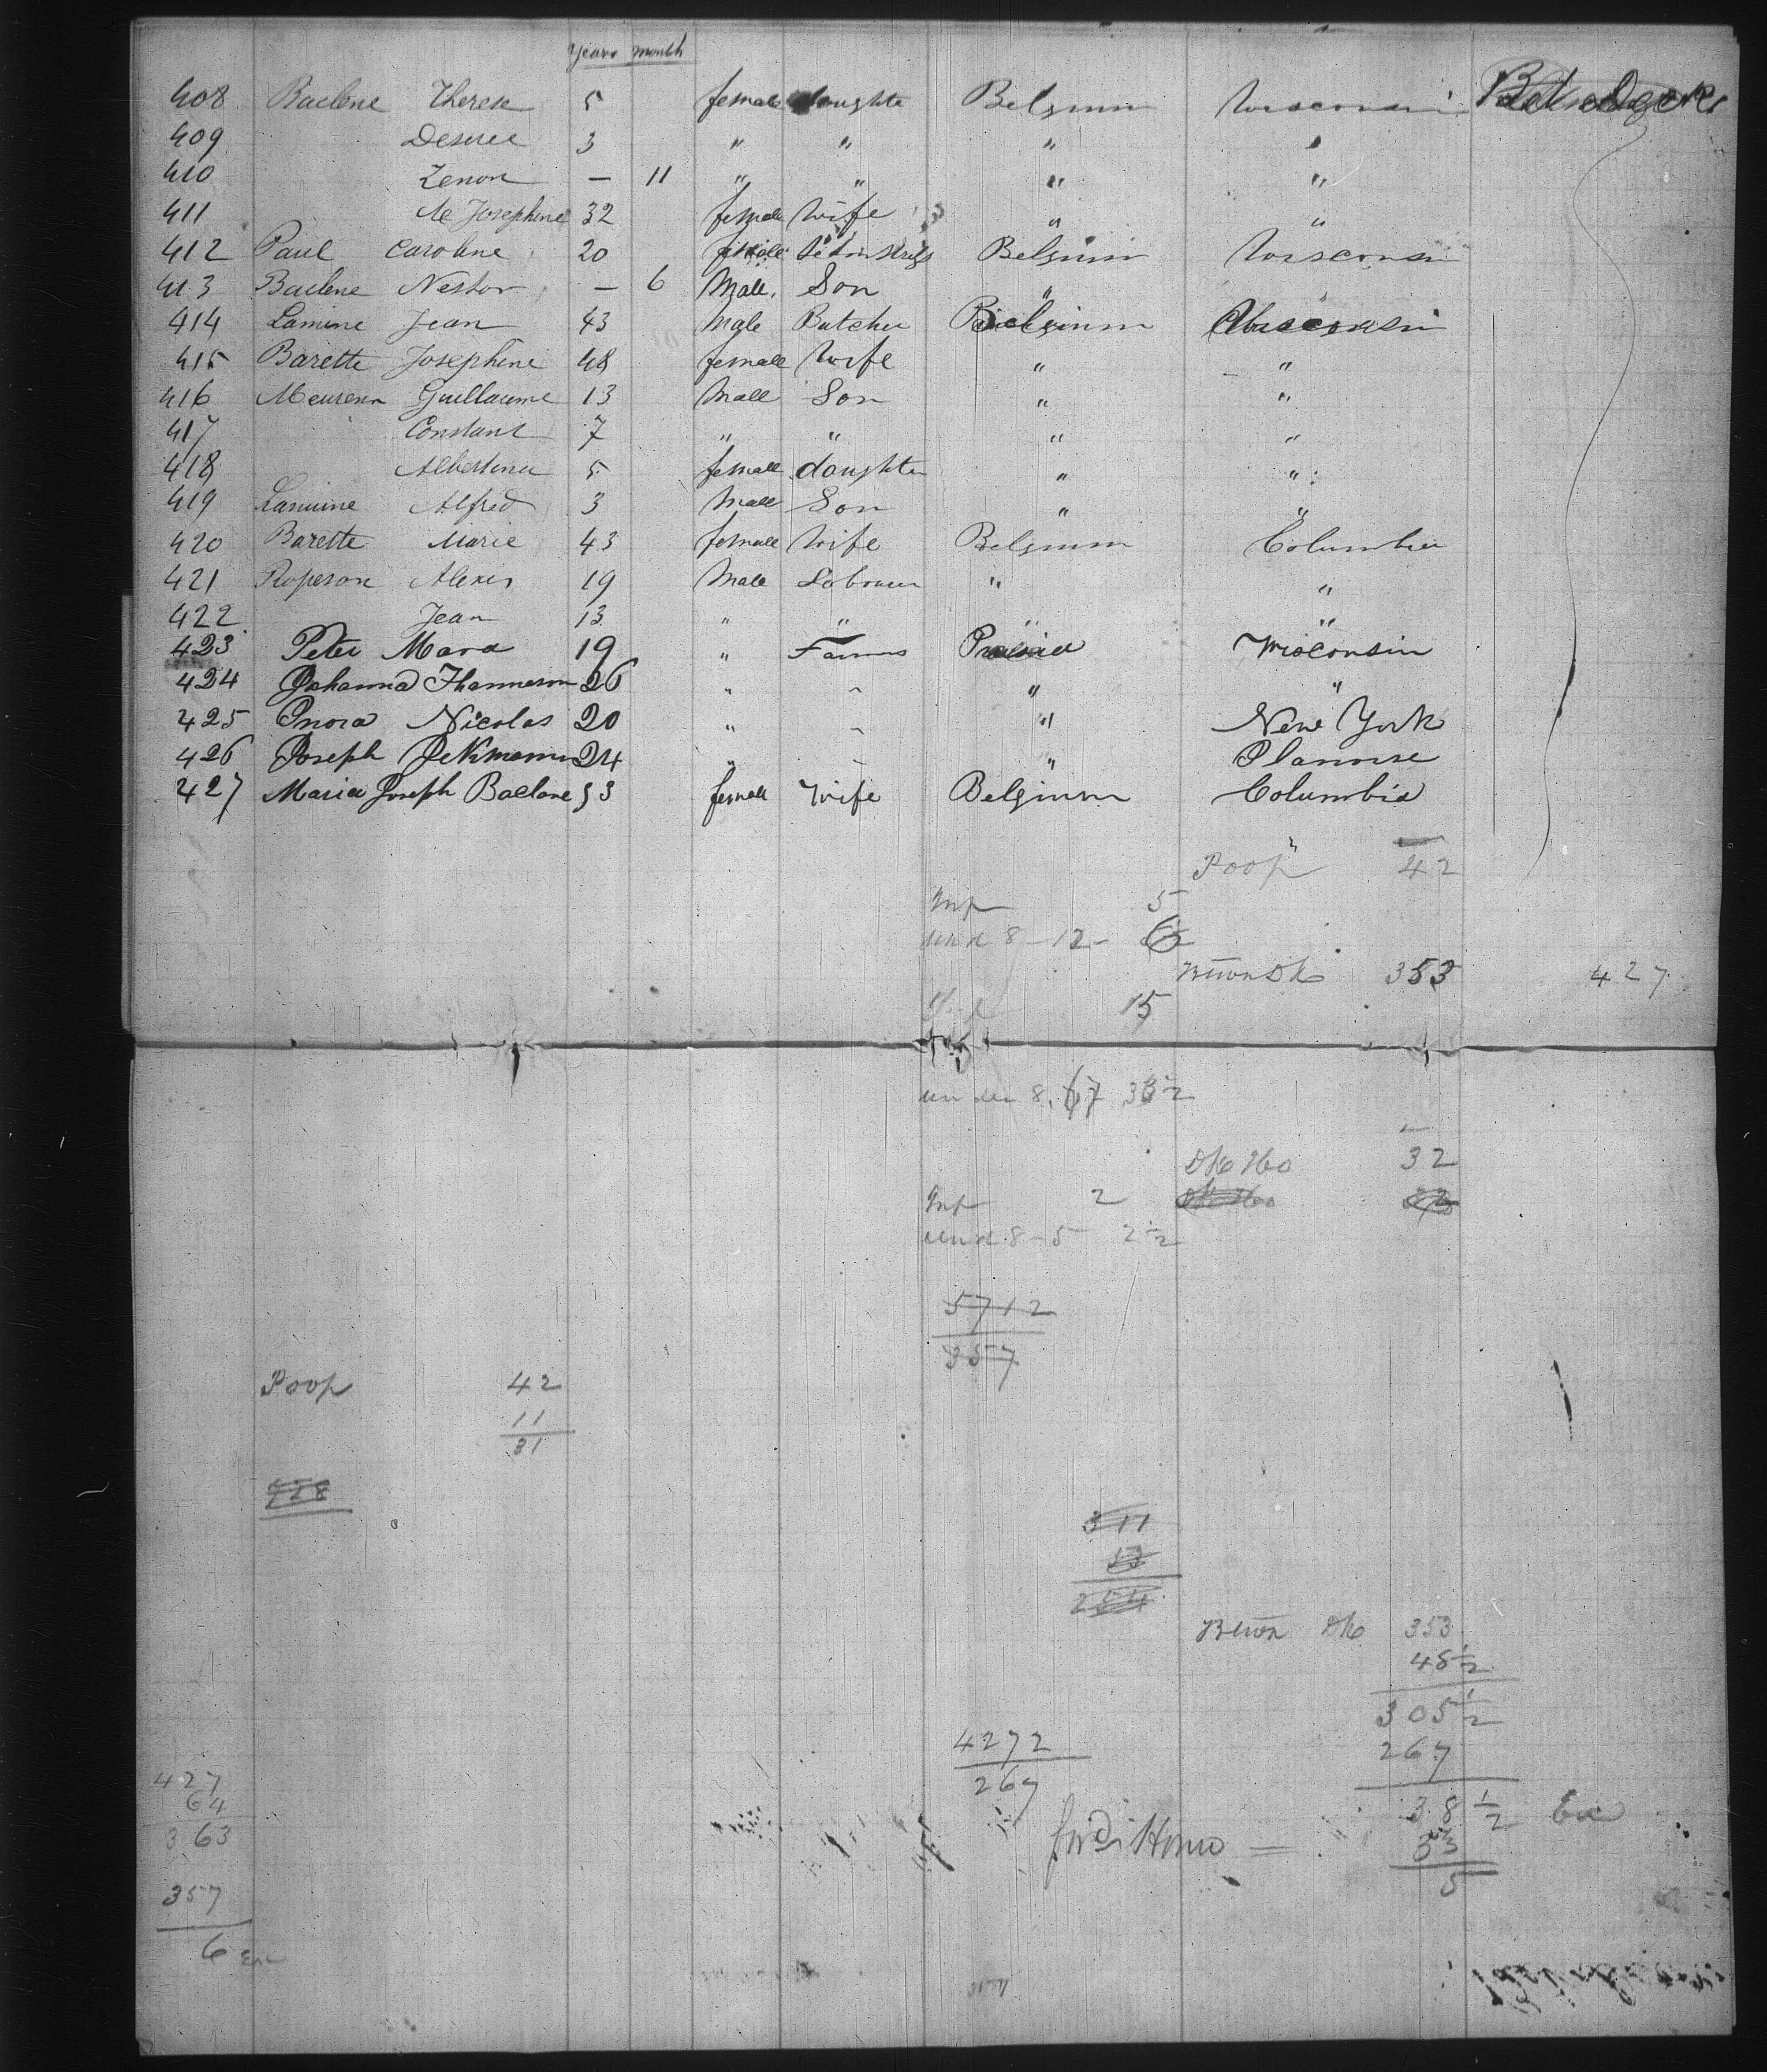 Years month
408 Baclene Therese 5 female daughte Belgium Wisconsin
409 Desiree 3 " " " "
410 Zenon — 11 " " " "
411 M Josephine 32 female Wife " "
412 Paul Caroline 20 female Belgium Wisconsin
413 Baclene Nestor — 6 Male. Son "
414 Lamine Jean 43 Male Butcher Belginm Wisconsin
415 Barette Josephine 48 female Wife " "
416 Meurenn Guillaume 13 Male Son " "
417 Constant 7 " " " "
418 Albertine 5 female daughter " "
419 Lamine Alfred 3 Male Son " "
420 Barette Marie 43 female Wife Belgium Columbia
421 Roperson Alexis 19 Male Labourer " "
422 Jean 13 " " " "
423 Peter Mara 19 " Farmes Prussia Wisconsin
424 Johanna Thanneson 26 " " "
425 Nicolas 20 " " New York
426 Joseph Dekmann 24 " "
427 Maria Joseph Baclane 33 female Wife Belginm Columbia
Poop 42
Inf 5
und 8 - 12 - 6
BtwnDk 353 427
15
under 8. 67 33 1/2
Dk Ho 32
Inf 2
und 8 - 5 2 1/2
5712
357
Poop 42
11
31
428
311
254
Btwn Dk 353
48 1/2
305 1/2
4272 267
267
427
64
363
38 1/2 Ex
33
5
357
6 Ex